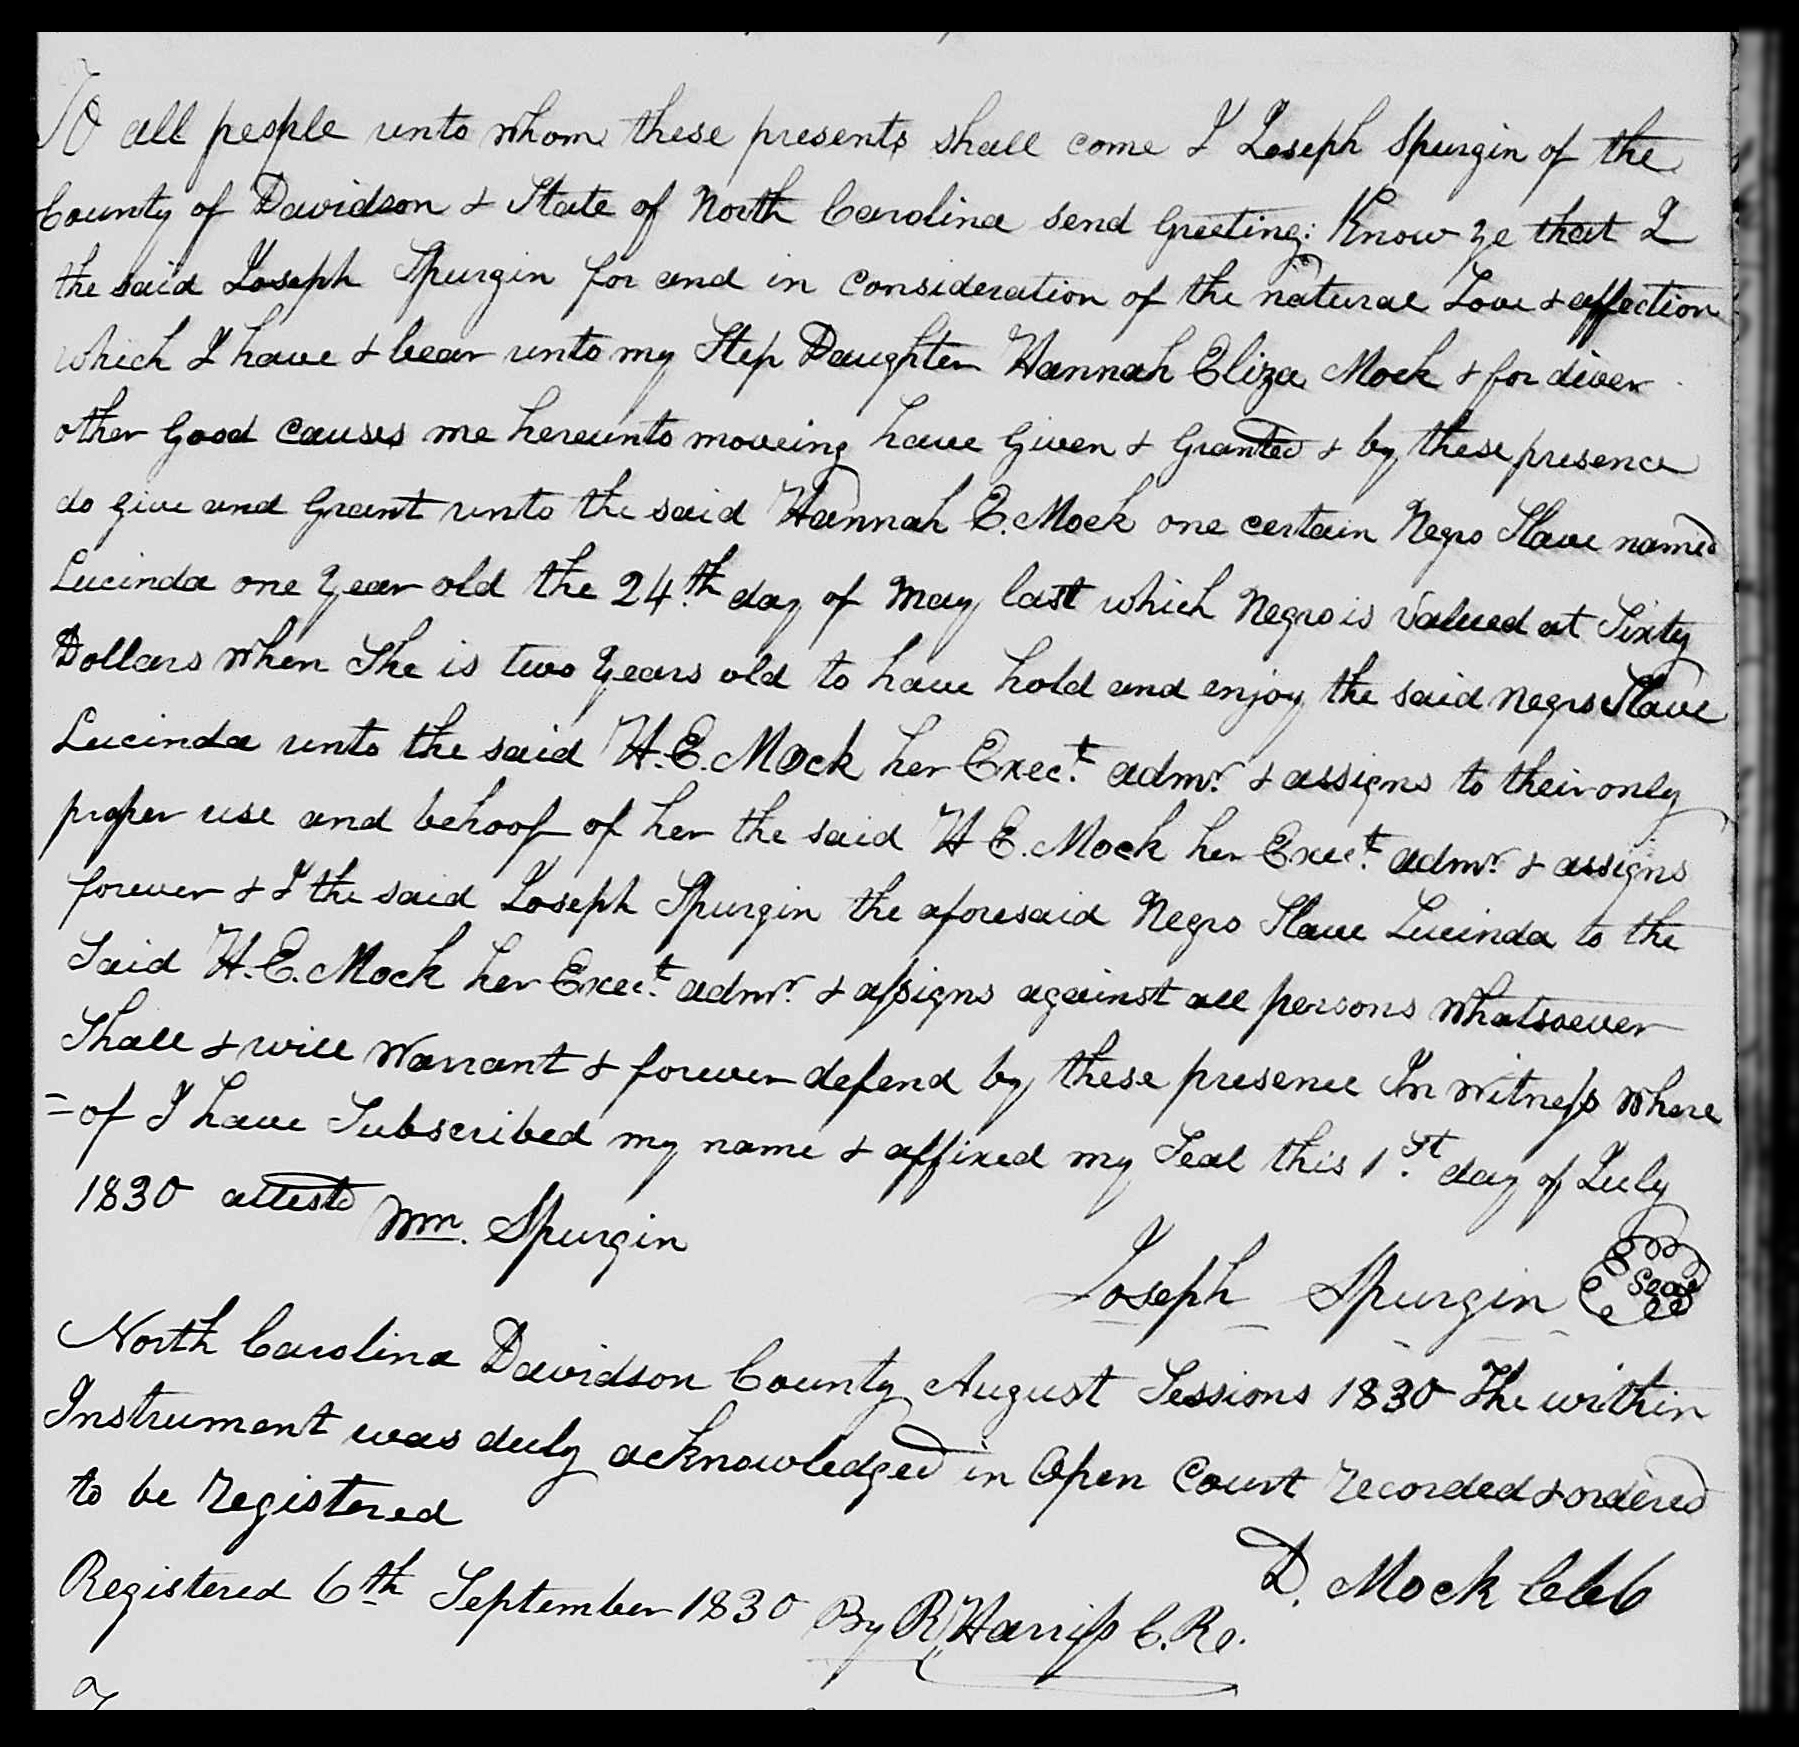 To all people unto whom these presents shall come I Joseph Spurgin of the
County of Davidson & State of North Carolina send Greeting: Know ye that I
the said Joseph Spurgin for and in consideration of the natural Love & affection
which I have & bear unto my Step Daughter Hannah Eliza Mock & for diver
other Good causes me hereunto moveing have Given & Granted & by these presence
do give and Grant unto the said Hannah E. Mock one certain Negro Slave named
Lucinda one Year old the 24.th day of May last which Negro is Valued at Sixty
Dollars when She is two Years old to have hold and enjoy the said Negro Slave
Lucinda unto the said H. E. Mock her Exec.t admr. & assigns to their only
proper use and behoof of her the said H E. Mock her Exec.t admr. & assigns
forever & I the said Joseph Spurgin the aforesaid Negro Slave Lucinda to the
Said H. E. Mock her Exec.t admr. & assigns against all persons whatsoever
Shall & will Warrant & forever defend by these presence In Witness where
=of I have Subscribed my name & affixed my Seal this 1.st day of July
1830 attestd Wm. Spurgin
Joseph Spurgin Seal
North Carolina Davidson County August Sessions 1830 The within
Instrument was duly acknowledged in Open Court recorded & ordered
to be registered
D. Mock CCC
Registered 6th September 1830 By R Harriss C. Re.